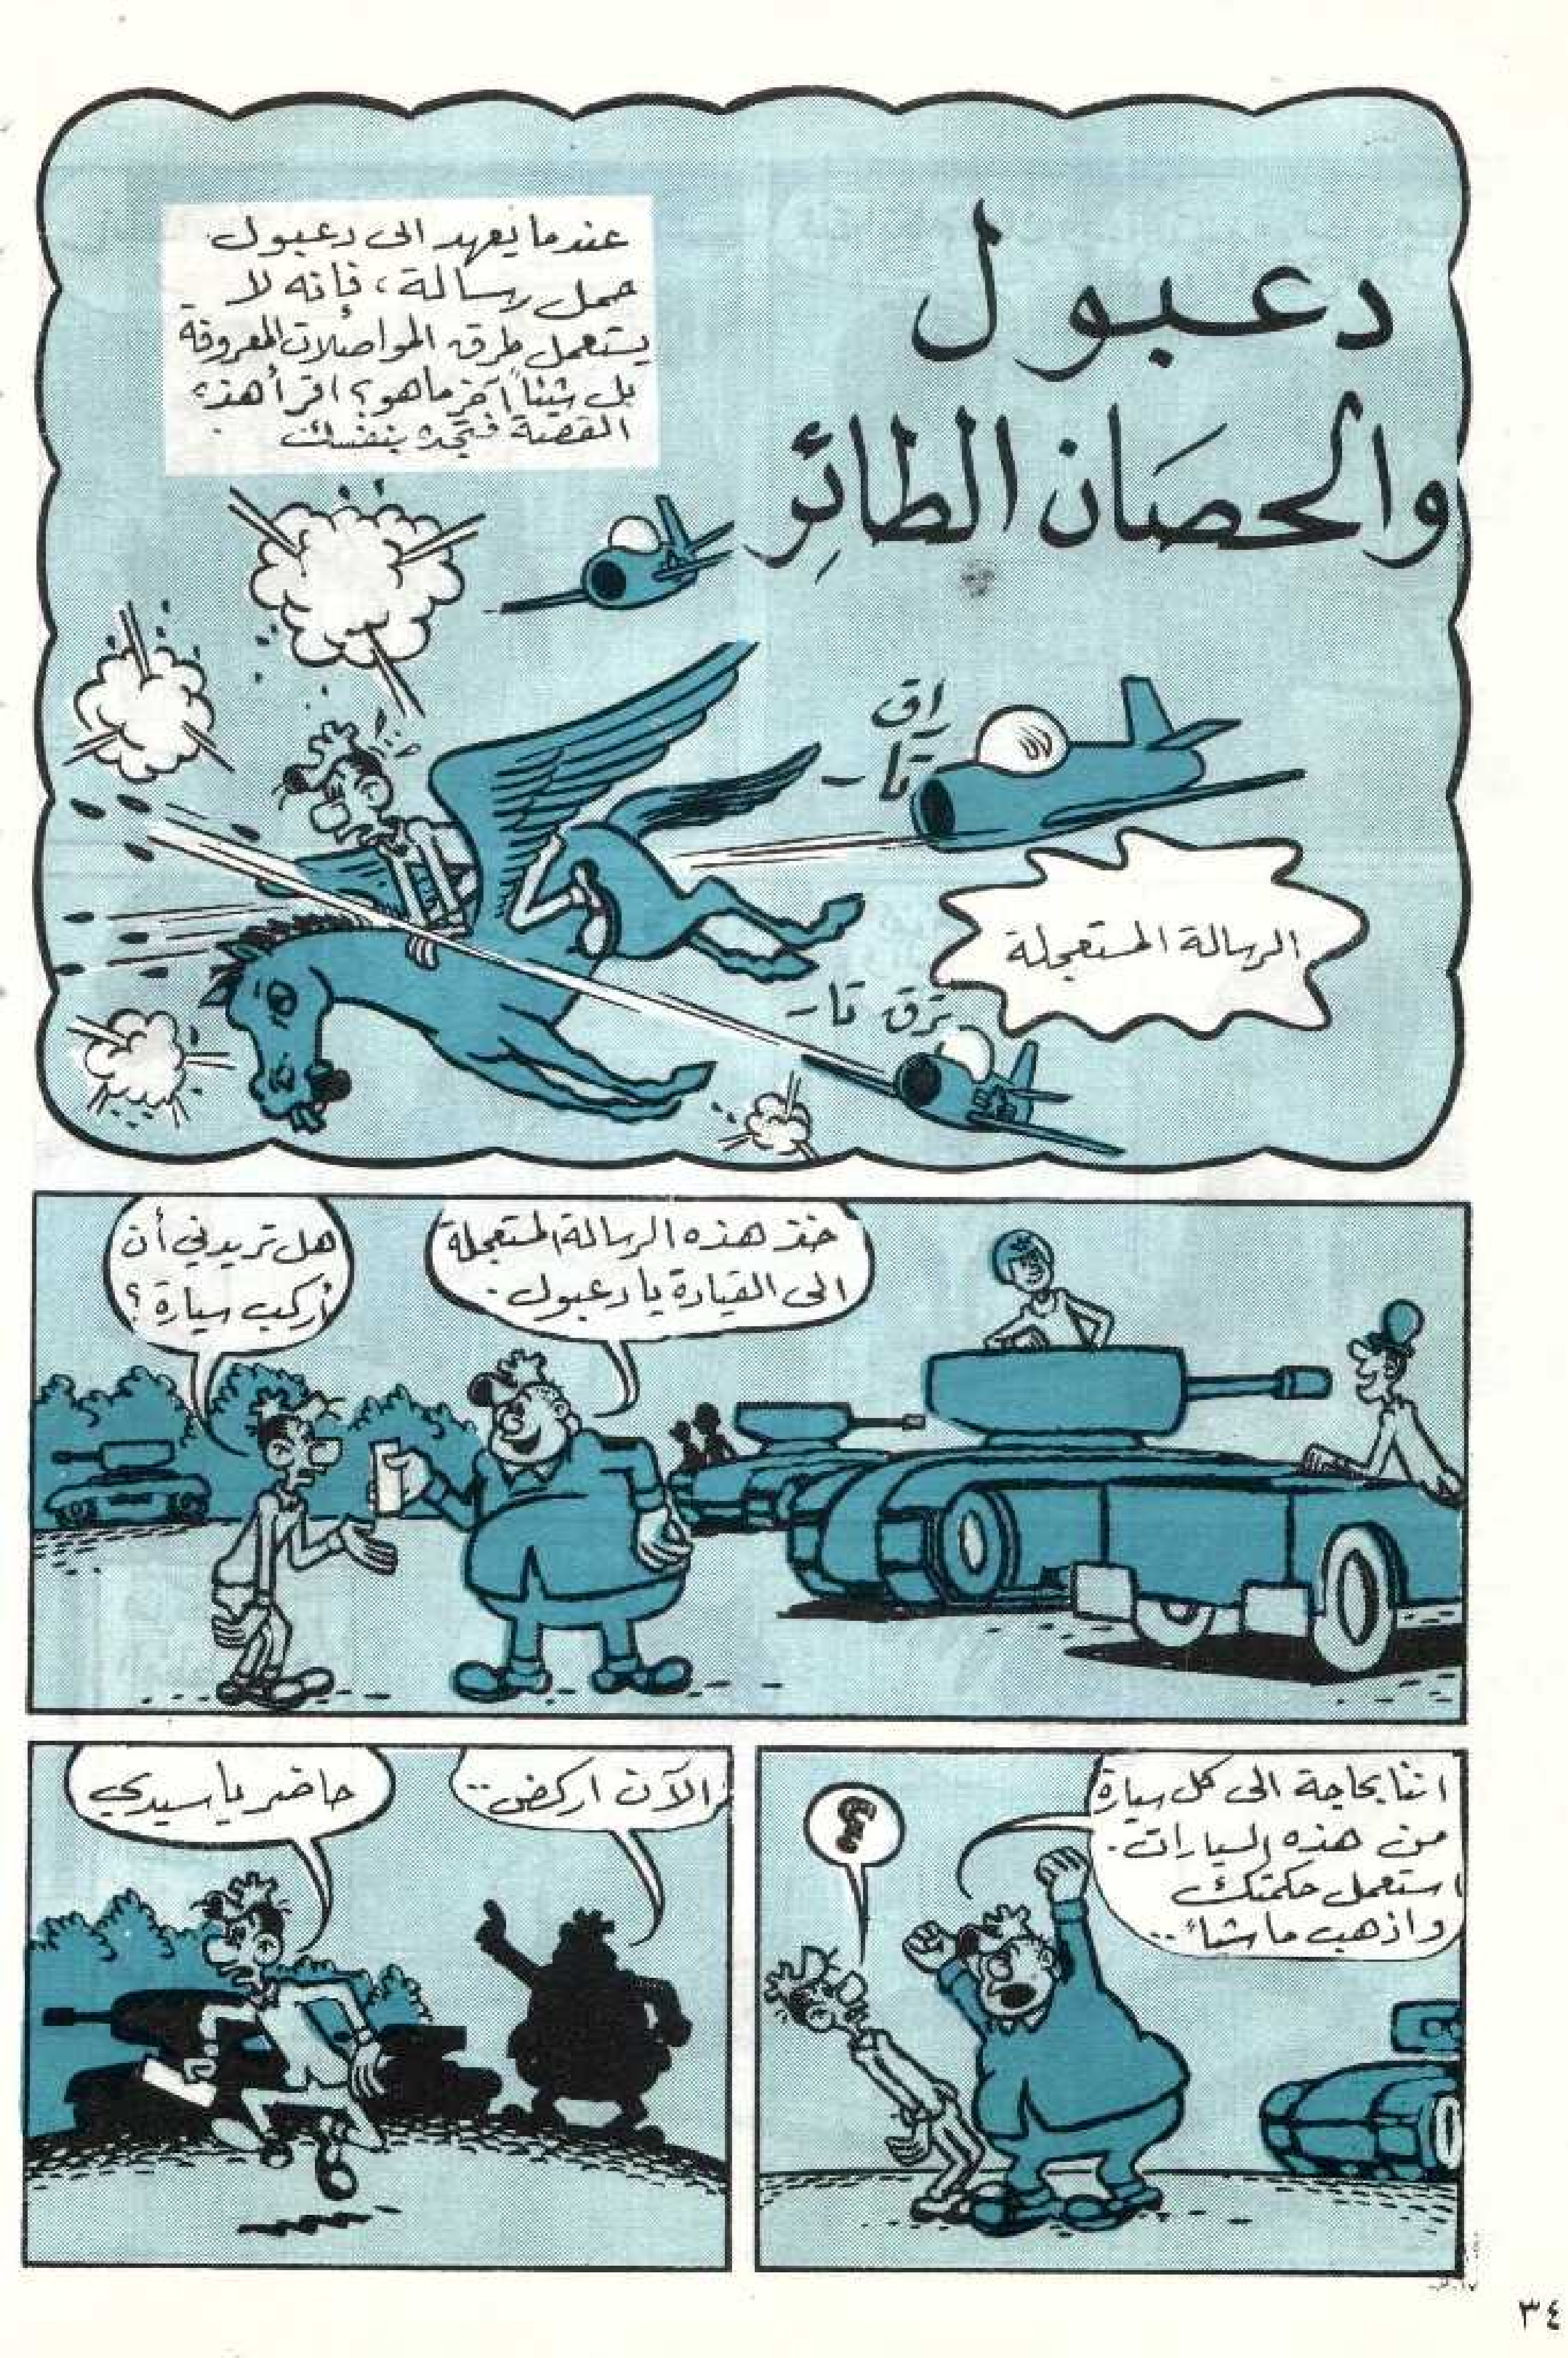 دعبول
والحصان الطائر
عندما يعهد الى دعبول
حمل رسالة، فإنه لا
يستعمل طرق المواصلات المعروفة
بل شيئاً آخر ما هو؟ اقرأ هذه
القصة فتجد بنفسك
الرسالة المستعجلة
خذ هذه الرسالة المستعجلة
الى القيادة يا دعبول.
هل تريدني أن
أركب سيارة؟
اننا بحاجة الى كل سيارة
من هذه السيارات.
استعمل حكمتك
واذهب ماشياً..
الآن اركض..
حاضر يا سيدي
٣٤